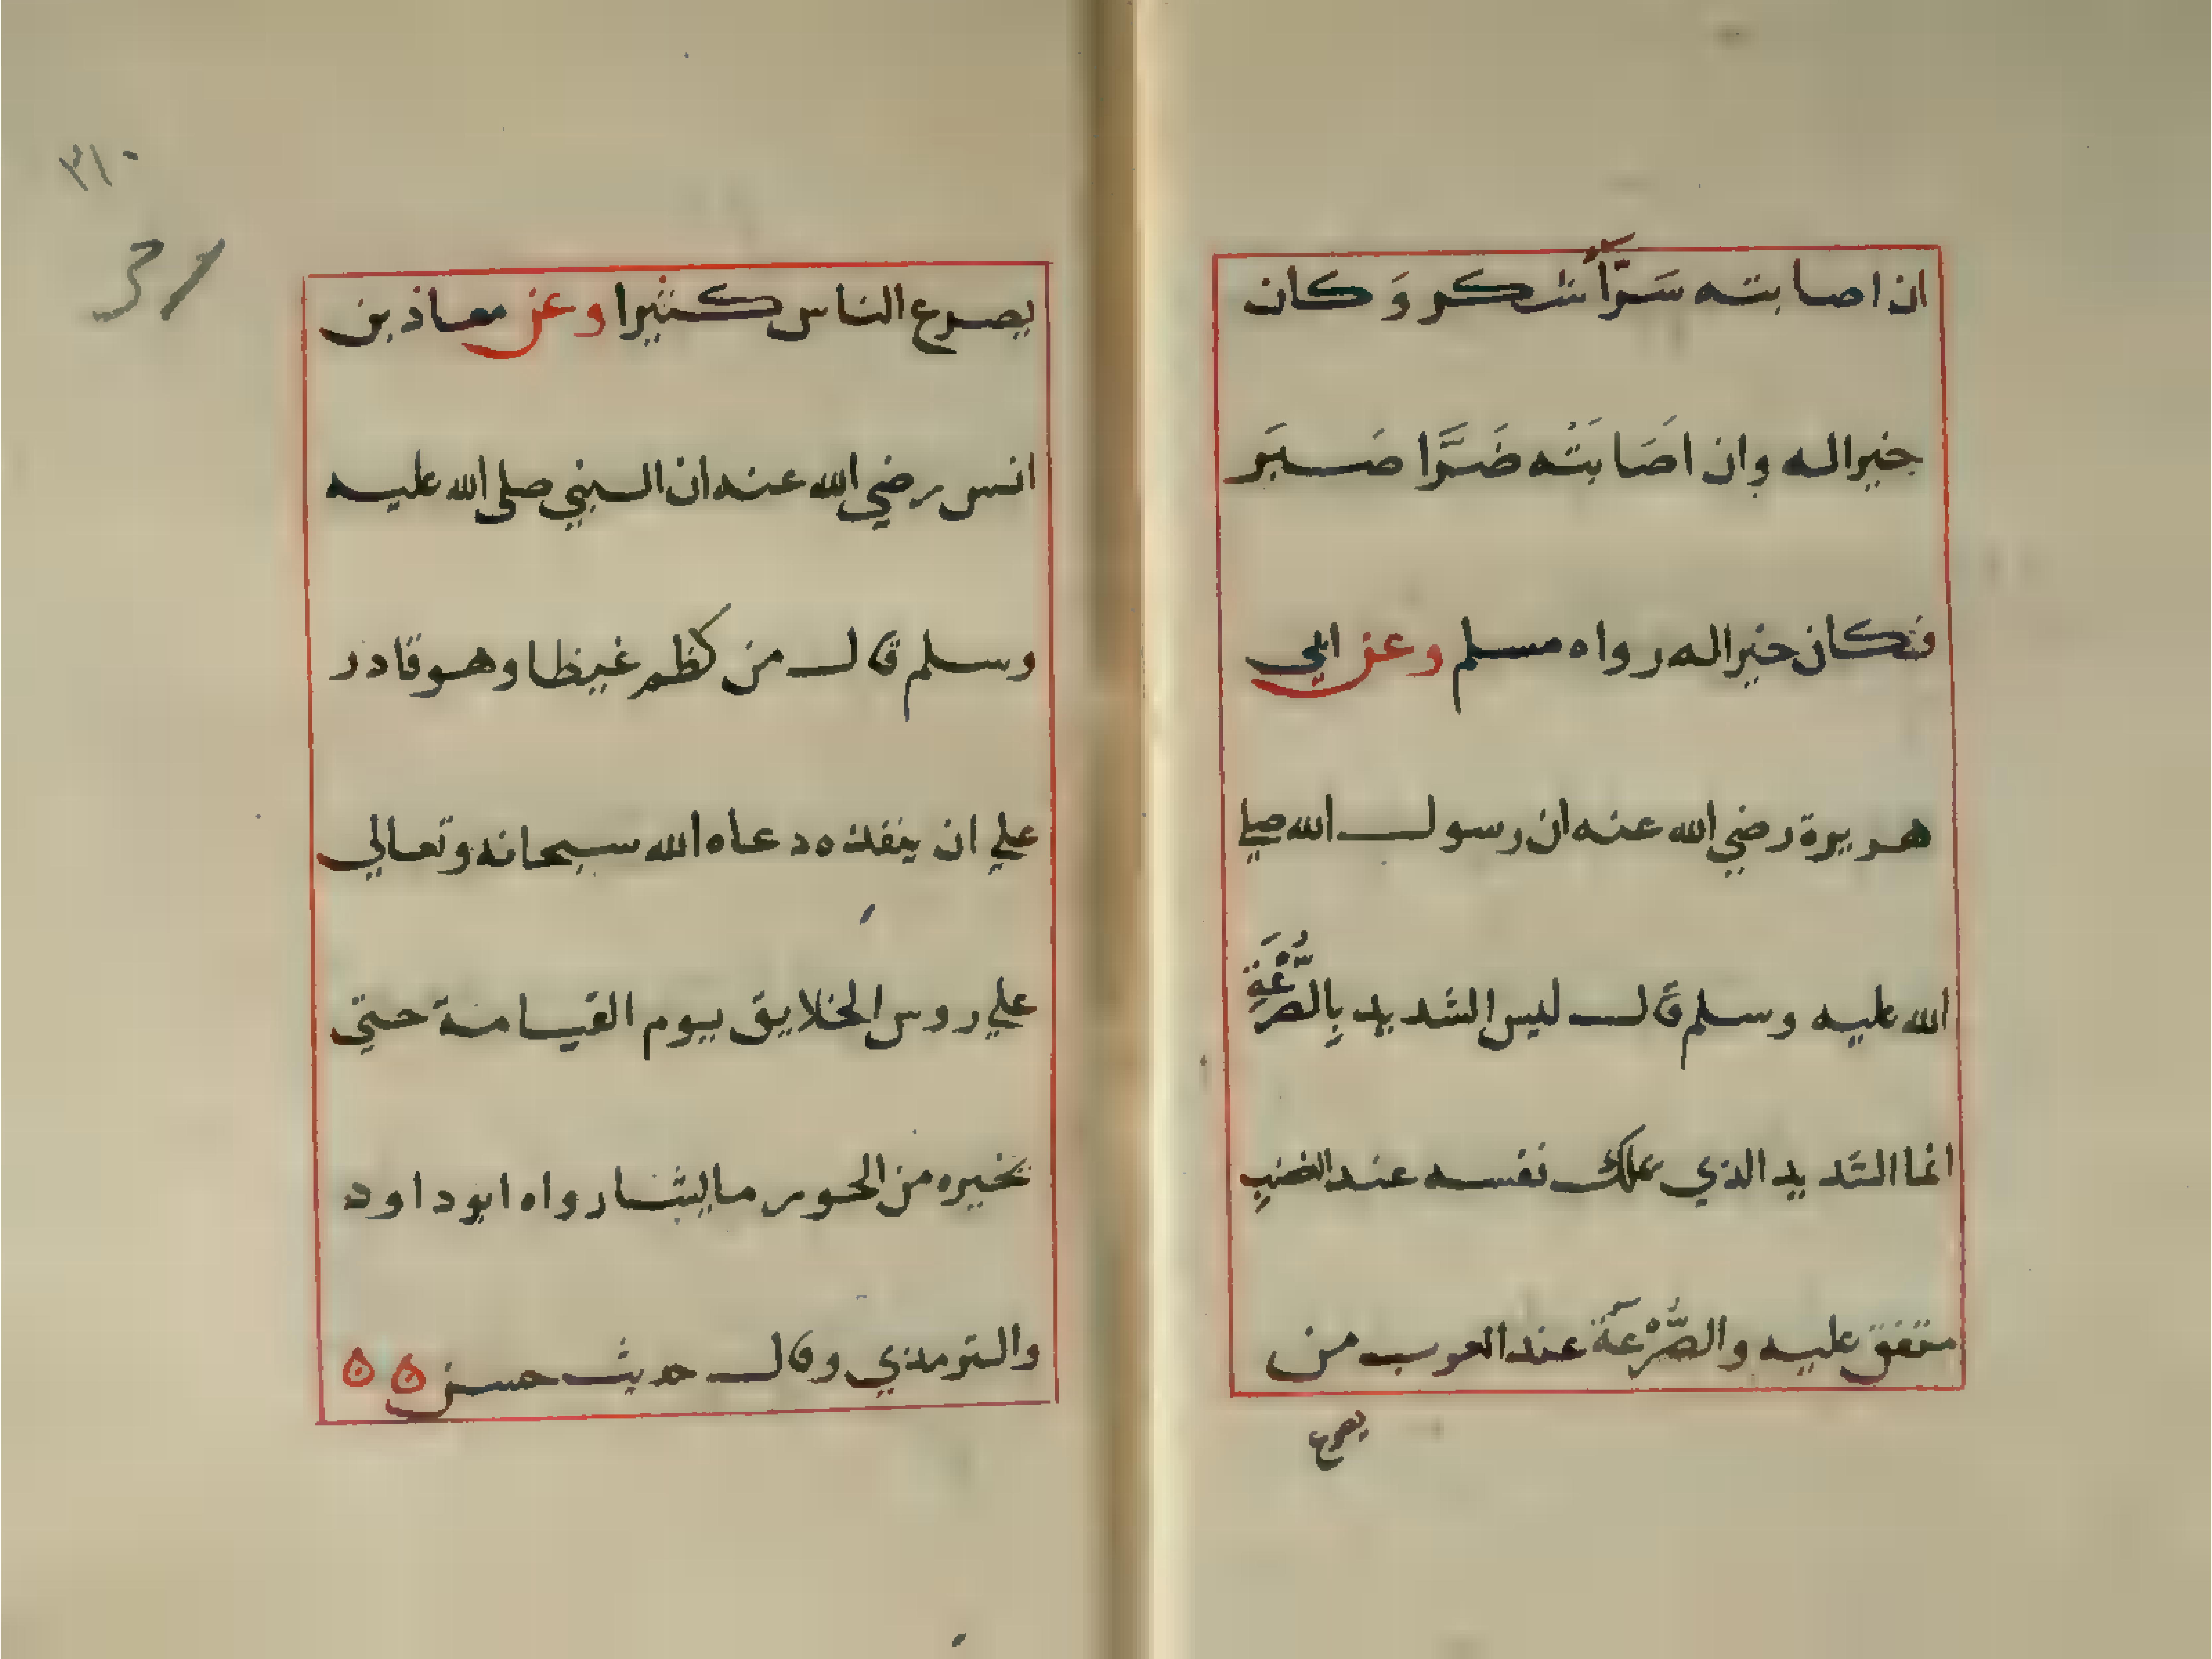 ان اصابته سَرّآءُ شكر وَ كان
خيرا له وان اَصَابَتْه ضَرَّا صَبَر
فكان خيرا له رواه مسلم وعن ابي
هريرة رضي الله عنه ان رسول الله صلي
الله عليه وسلم قال ليس الشديد بِالصُّرْعَةِ
انما الشديد الذي يملك نفسه عند الغضبِ
متفق عليه والصُّرْعَةَ عند العرب من
يصرع
٣١٠
31
يصرع الناس كثيرا وعن معاذ بن
انس رضي الله عنه ان النبي صلي الله عليه
وسلم قال من كظم غيظا وهو قادر
علي ان ينفذه دعاه الله سبحانه وتعالي
علي روس الخلايق يوم القيامة حتي
يخيره من الحور ما يشا رواه ابو داود
والترمذي وقال حديث حسن ۵ ۵